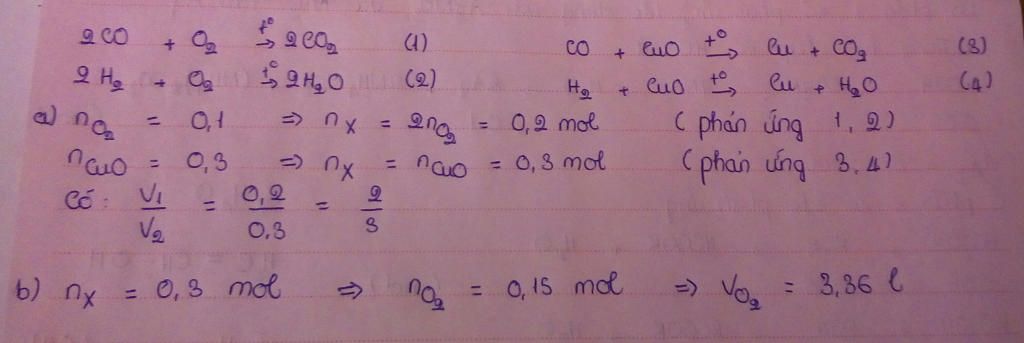 2CO + O₂ →(t⁰) 2CO₂ (1) CO + CuO →(t⁰) Cu + CO₂ (3)
2H₂ + O₂ →(t⁰) 2H₂O (2) H₂ + CuO →(t⁰) Cu + H₂O (4)
a) n_O₂ = 0,1 ⇒ n_X = 2n_O₂ = 0,2 mol (phản ứng 1, 2)
n_CuO = 0,3 ⇒ n_X = n_CuO = 0,3 mol (phản ứng 3, 4)
Có: V₁/V₂ = 0,2/0,3 = 2/3
b) n_X = 0,3 mol ⇒ n_O₂ = 0,15 mol ⇒ V_O₂ = 3,36 l